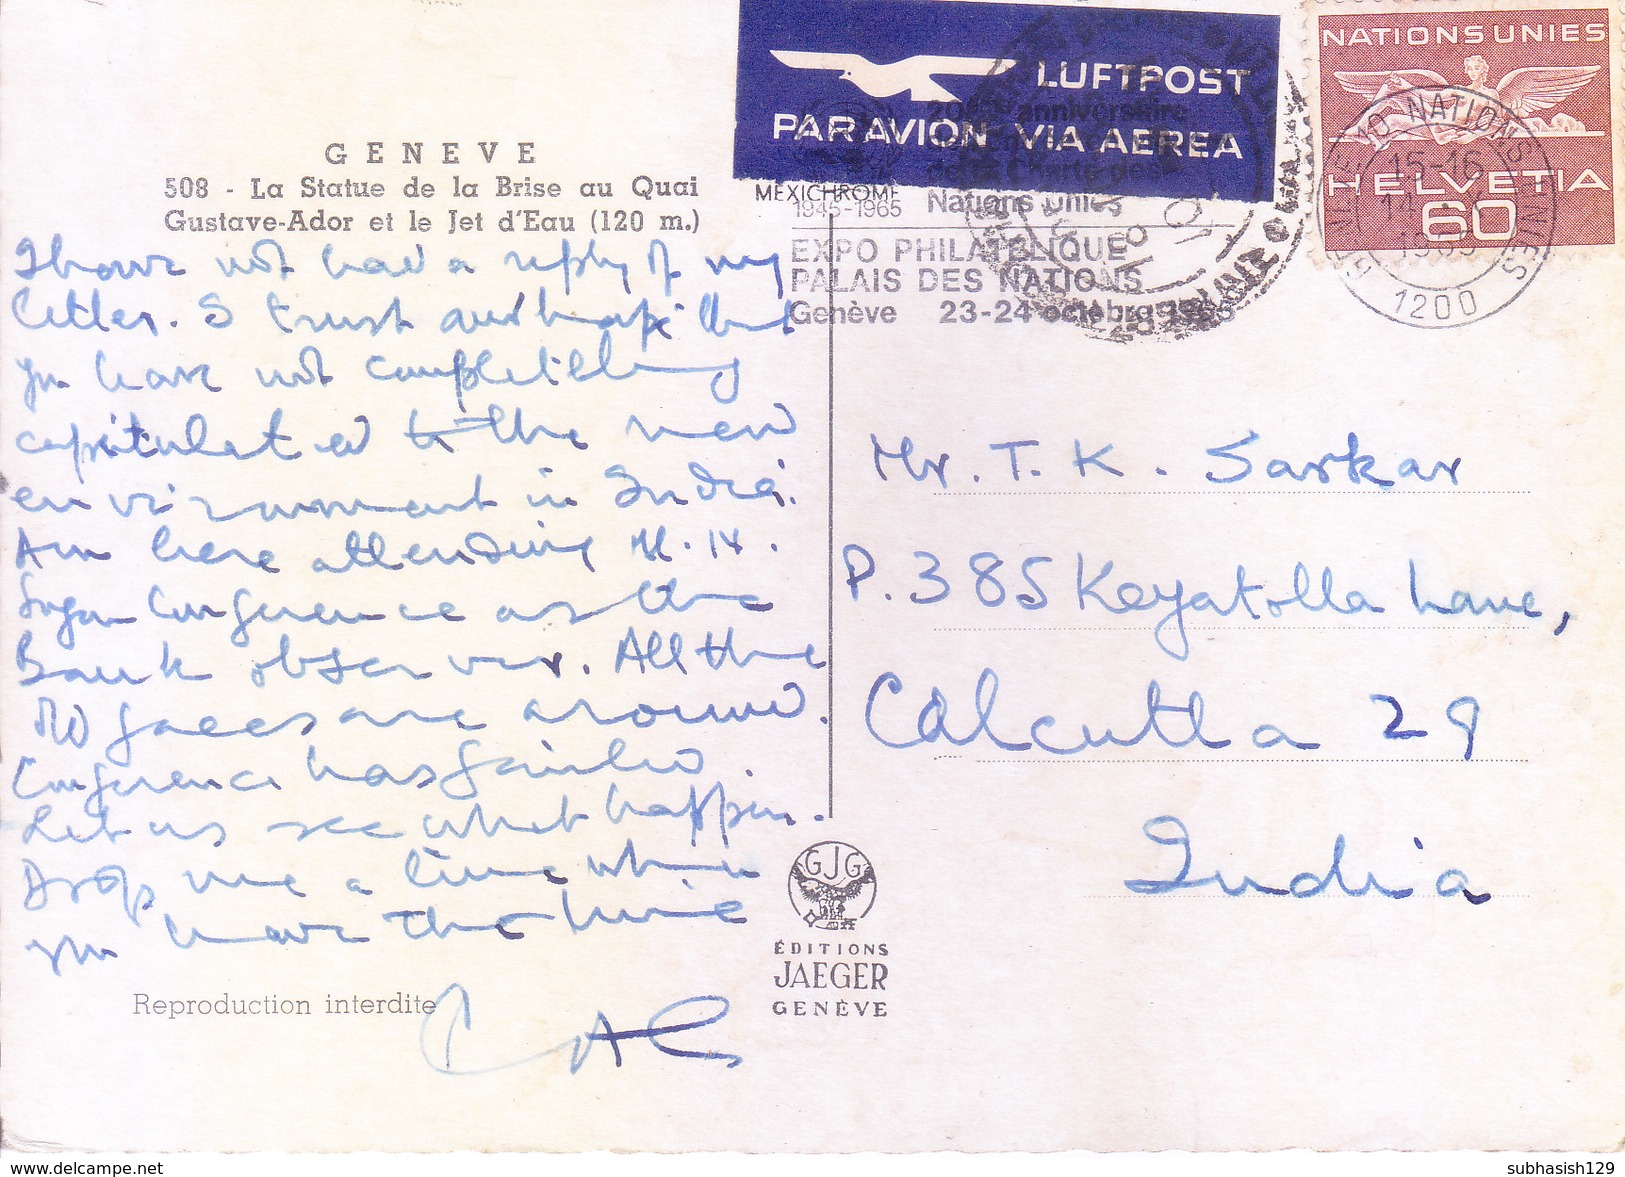 GENEVE
508 - La Statue de la Brise au Quai
Gustave-Ador et le Jet d'Eau (120 m.)
I have not had a reply of my
letter. I trust and hope that
you have not completely
capitulated to the new
environment in India.
Am here attending
Sugar Conference as the
Bank observer. All the
old faces are around.
Conference has failed.
Let us see what happen.
Drop me a line when
you have the time
Reproduction interdite
LUFTPOST
PAR AVION VIA AEREA
MEXICHROME
20ème anniversaire
de la Charte des
Nations Unies
1945-1965
EXPO PHILATELIQUE
PALAIS DES NATIONS
Genève 23-24 octobre 1965
NATIONS UNIES
HELVETIA
60
1200
NATIONS UNIES
15-16
1965
Mr. T. K. Sarkar
P. 385 Keyatolla Lane,
Calcutta 29
India
GJG
ÉDITIONS
JAEGER
GENÈVE
subhasish129
www.delcampe.net